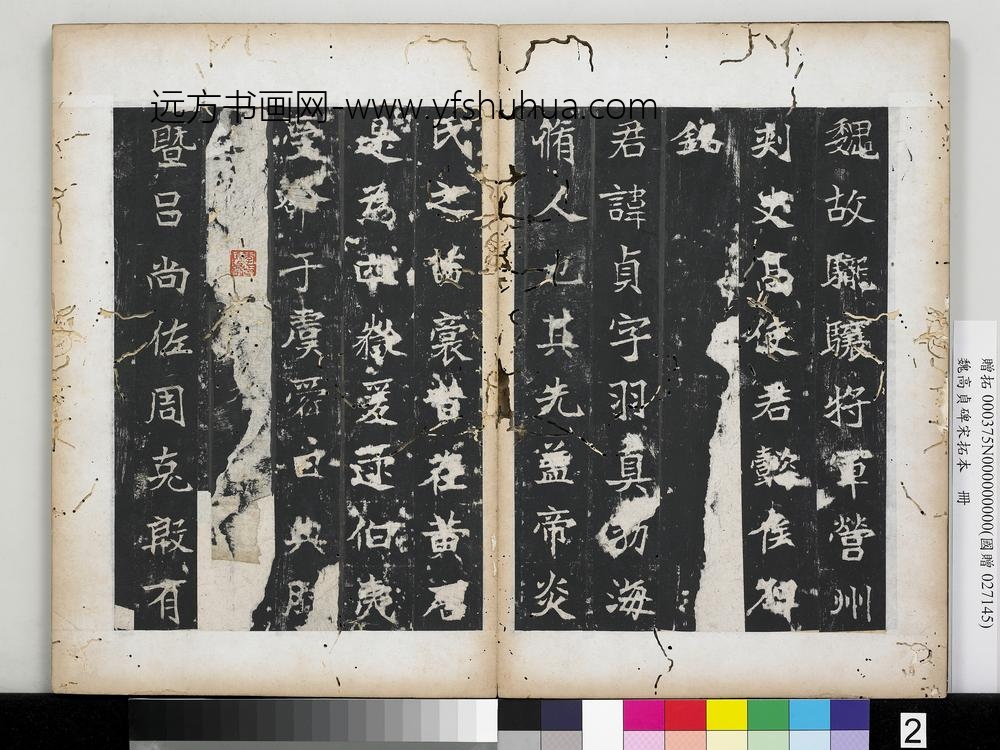 远方书画网 www.yfshuhua.com
魏故龍驤將軍營州
刺史高使君懿侯碑
銘
君諱貞字羽真勃海
脩人也其先蓋帝炎
氏之苗裔昔在黃唐
是為四嶽爰逮伯夷
受命于虞爰曰典朋
暨呂尚佐周克殷有
贈拓 000375N000000000(國贈 027145)
魏高貞碑宋拓本 冊
2